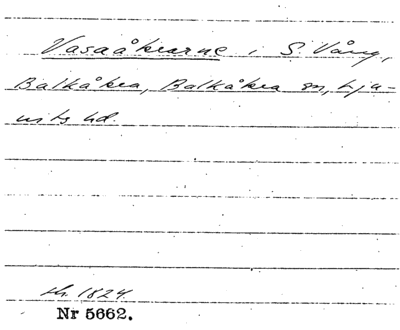 Vasaåkrarne i S. Vång,
Balkåkra, Balkåkra sn, Lju-
nits hd.
sk. 1824.
Nr 5662.